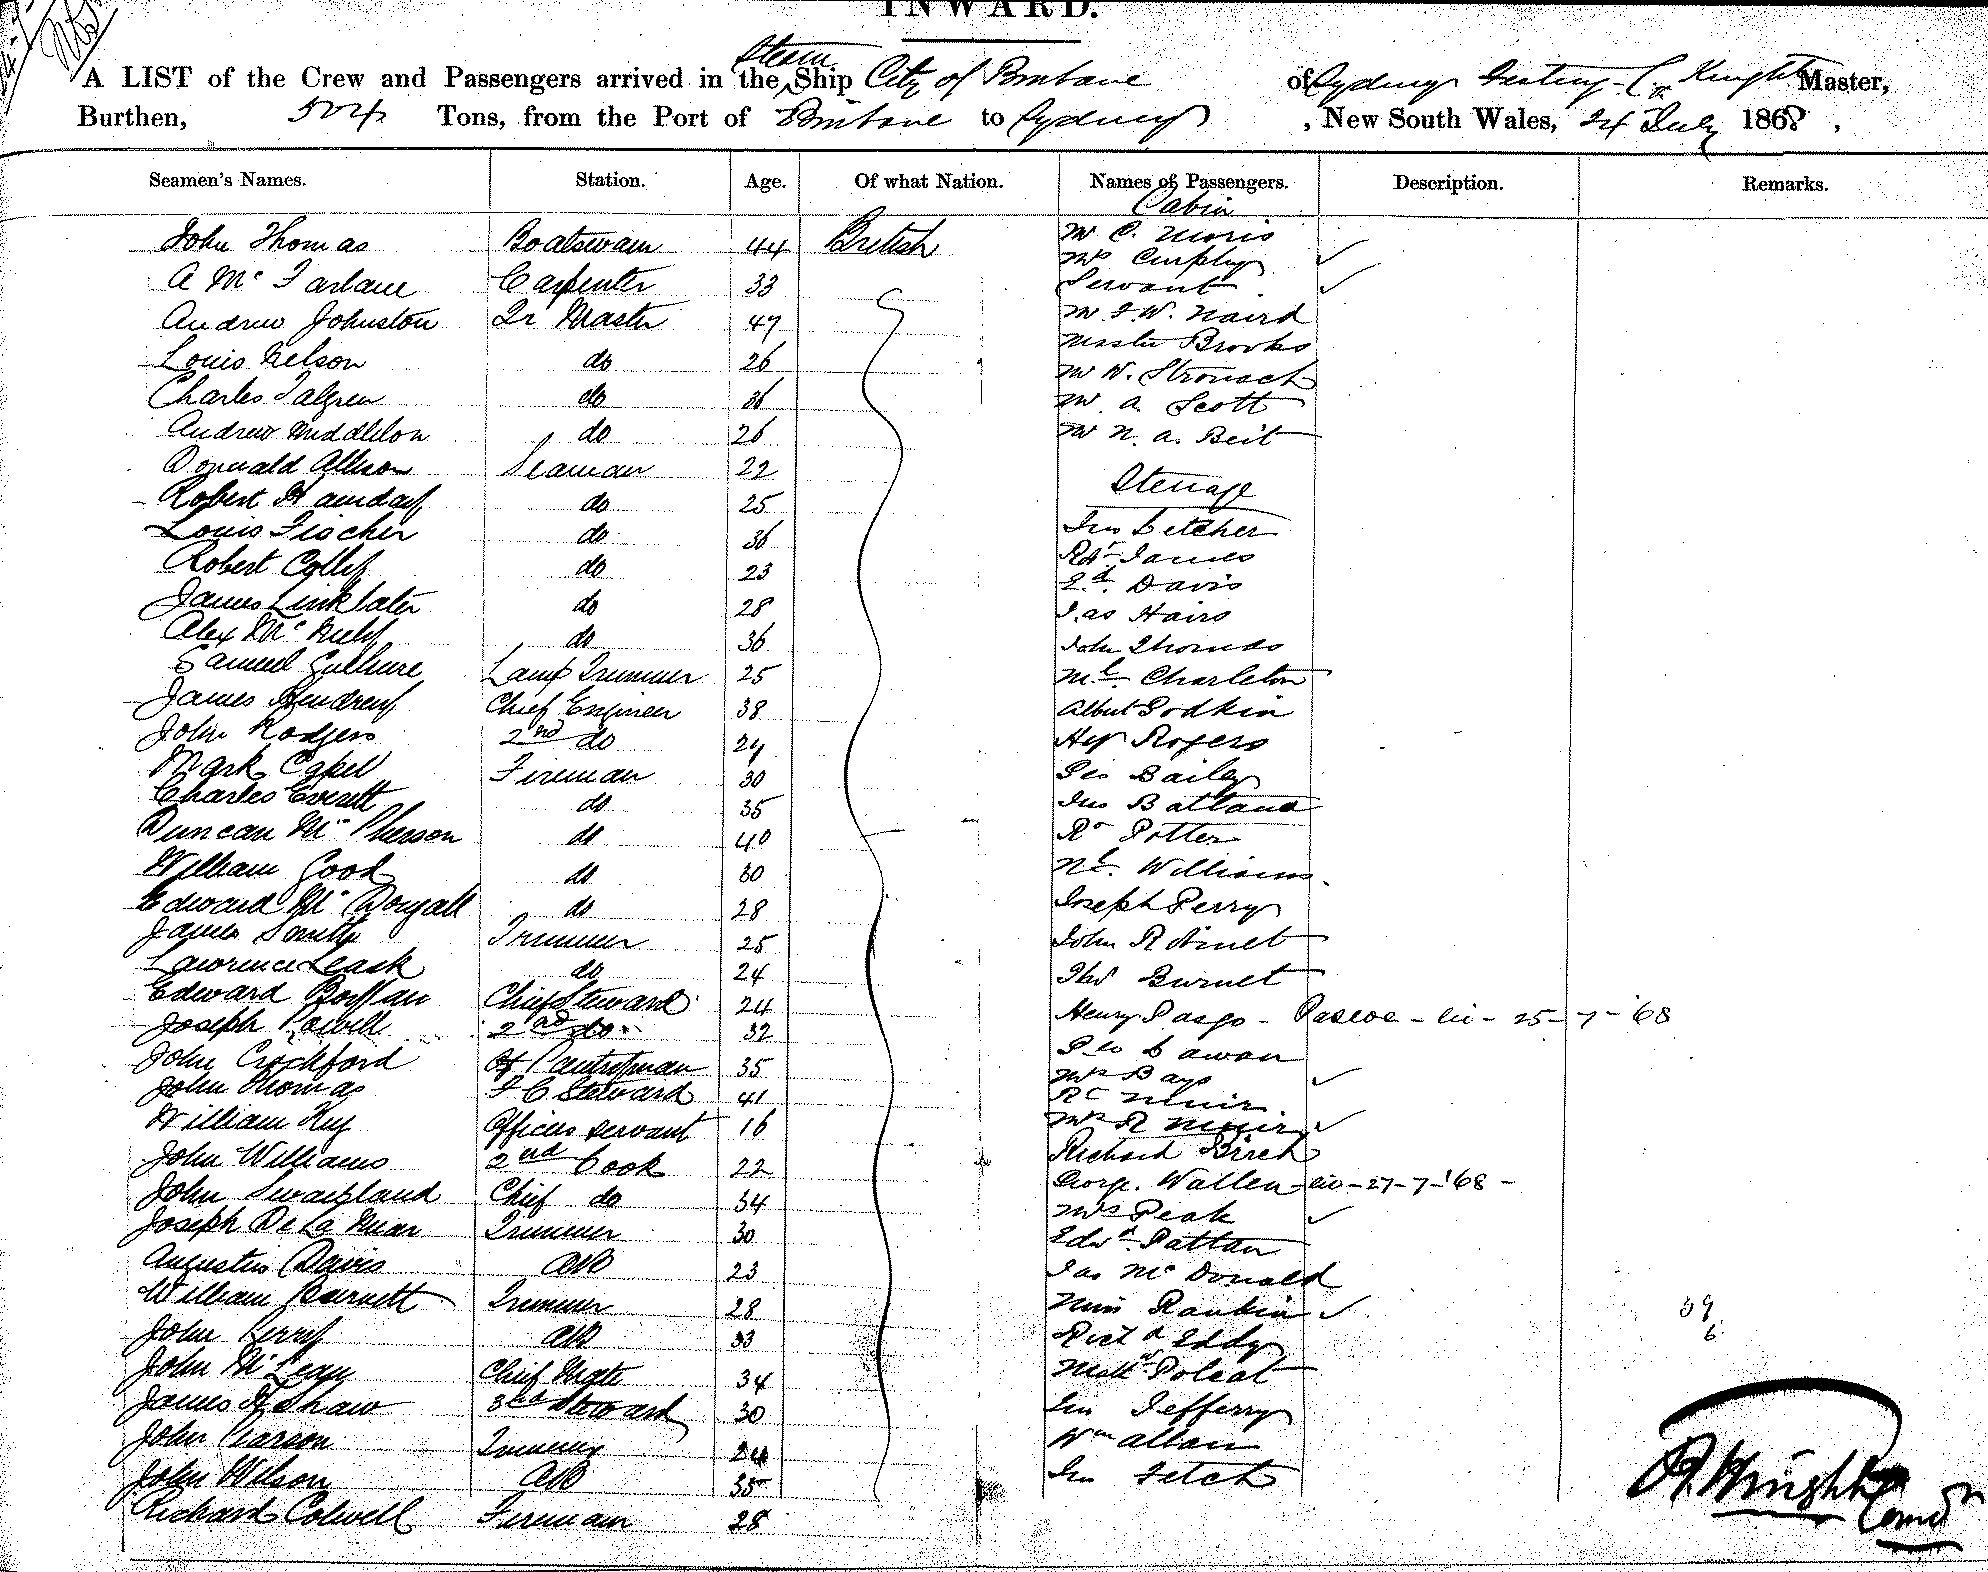 INWARD.
A LIST of the Crew and Passengers arrived in the Steam Ship City of Brisbane of Sydney Knight Master,
Burthen, 504 Tons, from the Port of Brisbane to Sydney, New South Wales, 24 July 1868,
Seamen's Names. Station. Age. Of what Nation. Names of Passengers. Description. Remarks.
Cabin
John Thomas Boatswain 44 British Mr C. Moris
Mrs Curphy ✓
A Mc Farlane Carpenter 33 Servant ✓
Andrew Johnston Qr Master 47 Mr J. W. Naird
Louis Nelson do 26 Master Brooks
Charles Talgren do 36 Mr W. Stronach
Mr A. Scott
Andrew Middleton do 26 Mr N. A. Beit
Donald Allison Seaman 22
Steerage
Robert do 25
Louis Fischer do 36 Jno Letcher
Robert do 23 Rt James
Ed. Davis
James Linklater do 28 Jas Hairs
Alex Mc do 36 John Thomas
Samuel Lamp Trimmer 25 Ml. Charleton
James Hendrey Chief Engineer 38 Albert Godkin
John Rodgers 2nd do 29 Hy Rogers
Mark Capel Fireman 30 Geo Bailey
Charles Everett do 35 Jno Batland
Duncan Mc Pherson do 40 Rt Potter
William Good do 30 Nl. Williams
Edward Mc Dougall do 28 Joseph Perry
James Smith Trimmer 25 John
Lawrence Leask do 24 Thos Burnet
Edward Chief Steward 24 Henry Pasgo - Pascoe - liv - 25-7-'68
Joseph Powell 2nd do 32
John Crockford Pantryman 35 Mrs Bays ✓
John Thomas F C Steward 41 Rt Muir
William Officers servant 16 Mrs R Muir ✓
John Williams 2nd Cook 22 Richard Birch
John Swaipland Chief do 34 George Wallen - liv - 27-7-'68 -
Mrs Peak ✓
Joseph De La Mear Trimmer 30 Edwd. Pattan
Augustin Davis AB 23 Jas Mc Donald
William Burnett Trimmer 28 Miss Rankin ✓ 39
John Perry AB 33 Richd Eddy 6
John McLean Chief Mate 34 Matt Poleat
James H Shaw 3rd Steward 30 Jno Jefferry
John Pearson Trimmer 24 Wm Allan
John Wilson AB 35 Jno Fetch
Richard Colwell Fireman 28
Knight
Comdr